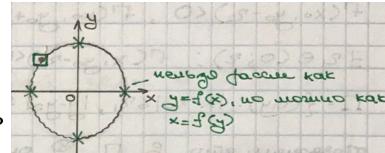 y
нельзя рассм как
0 x y = f(x), но можно как
x = f(y)